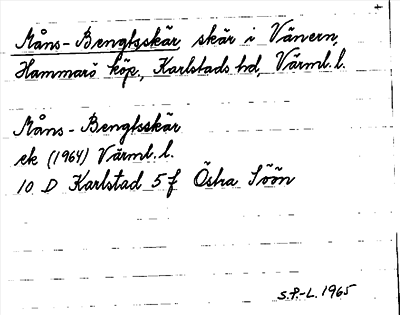 Måns-Bengtsskär skär i Vänern,
Hammarö köp., Karlstads hd, Värml. l.
Måns-Bengtsskär
ek (1964) Värml. l.
10 D Karlstad 5 f Östra Söön
S.P.-L. 1965